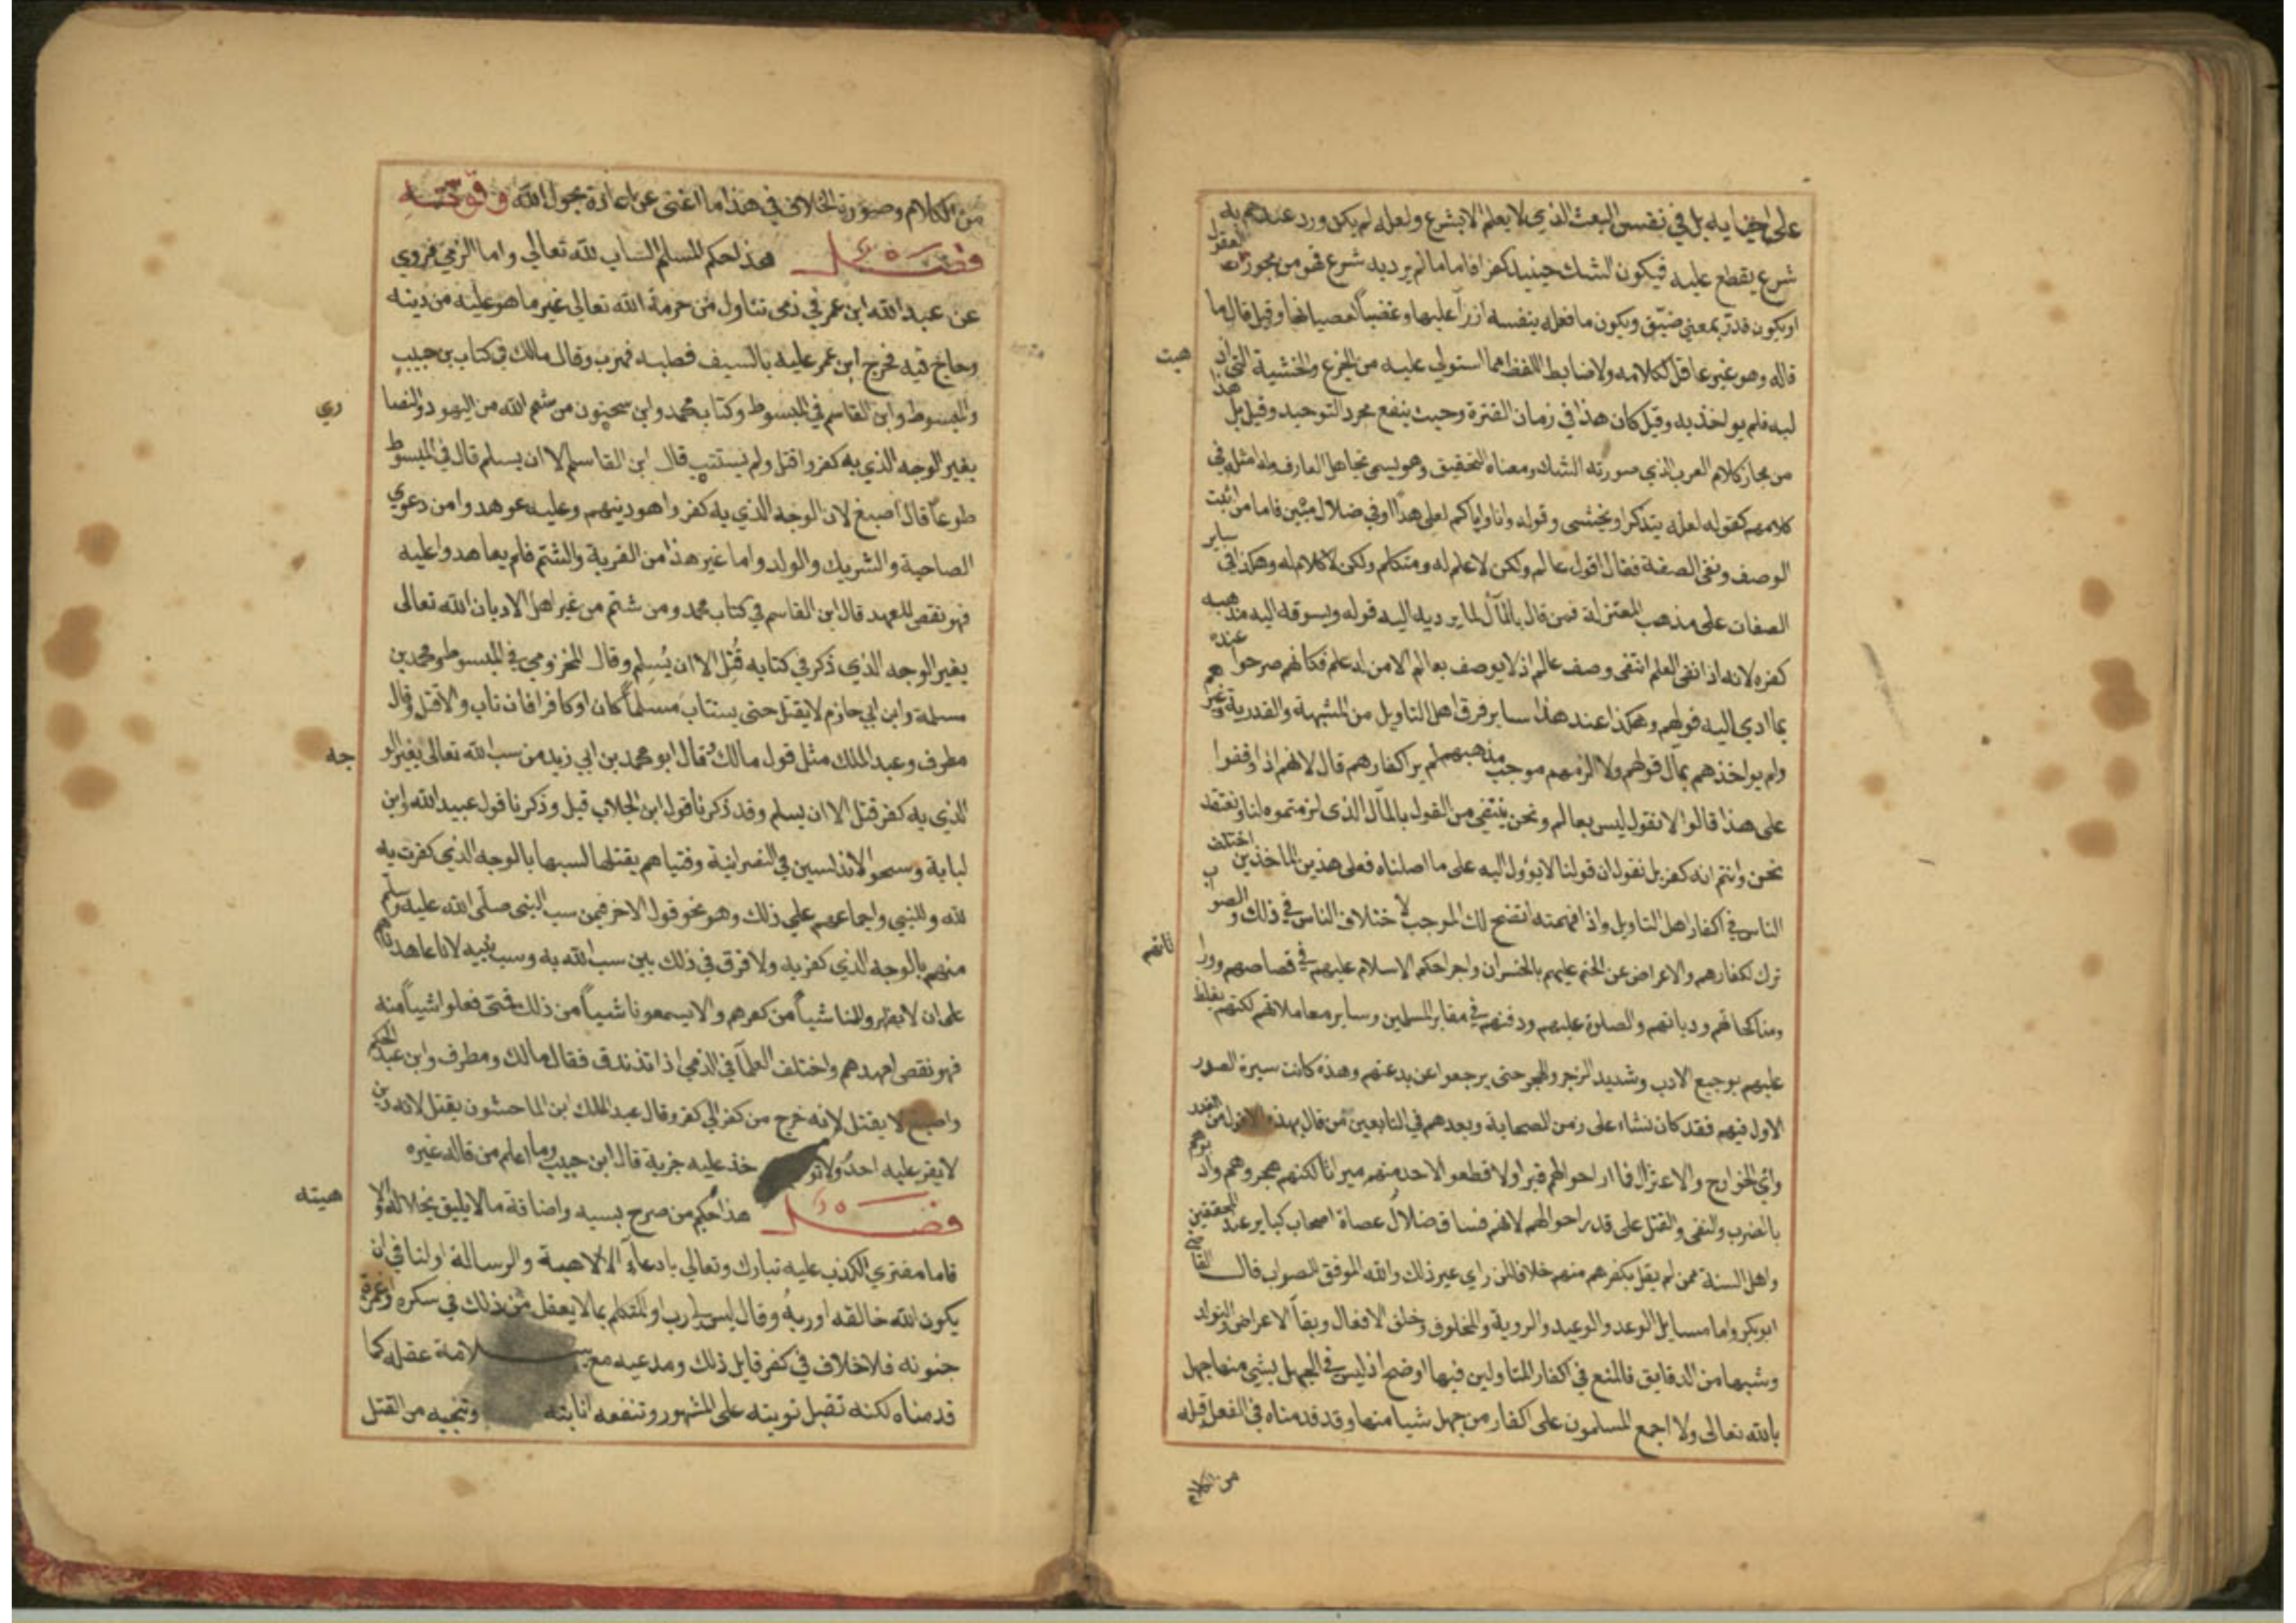 على احيايه بل في نفس البعث الذي لا يعلم الا بشرع ولعله لم يكن ورد عندهم به
شرع يقطع عليه فيكون الشك حينيذ كفرا فاما ما لم يرد به شرع فهو من مجوزات العقول
او يكون قدر بمعنى ضيق ويكون ما فعله بنفسه ازرآ عليها وغضباً لعصيانها وقيل قال ما
قاله وهو غير عاقل لكلامه ولا ضابط للفظه مما استولي عليه من الجزع والخشية التي اذ
هبت
لبه فلم يواخذ به وقيل كان هذا في زمان الفترة وحيث ينفع مجرد التوحيد وقيل بل هذا
من مجاز كلام العرب الذي صورته الشك ومعناه التحقيق وهو يسمى تجاهل العارف وله امثله في
كلامهم كقوله لعله يتذكر او يخشى وقوله وانا واياكم لعلى هداً او في ضلال مبين فاما من اثبت
الوصف ونفى الصفة فقال اقول عالم ولكن لا علم له ومتكلم ولكن لا كلام له وهكذا في ساير
الصفات على مذهب المعتزلة فمن قال بالمآل لما يرديه اليه قوله ويسوقه اليه مذهبه
كفره لانه اذا نفى العلم انتفى وصف عالم اذ لا يوصف بعالم الا من له علم فكانهم صرحوا عنده
بما ادي اليه قولهم وهكذا عند هذا ساير فرق اهل التاويل من المشبهة والقدرية وغيرهم
ولم يواخذهم بمآل قولهم ولا الزمهم موجب مذهبهم لم ير اكفارهم قال لانهم اذا وقفوا
على هذا قالوا لا نقول ليس بعالم ونحن ننتفي من القول بالمآل الذي لزمتموه لنا ونعتقد
نحن وانتم انه كفر بل نقول ان قولنا لا يوول اليه على ما اصلناه فعلى هذين الماخذين اختلف
الناس في اكفار اهل التاويل واذا فهمته اتضح لك الموجب لاختلاف الناس في ذلك والصواب
ترك اكفارهم والاعراض عن الحتم عليهم بالخسران واجرا حكم الاسلام عليهم في قصاصهم وورا
ثاتهم
ومناكحاتهم ودياتهم والصلوة عليهم ودفنهم في مقابر المسلمين وساير معاملاتهم لكنهم يغلظ
عليهم بوجيع الادب وشديد الزجر والهجر حتى يرجعوا عن بدعتهم وهذه كانت سيرة الصدر
الاول فيهم فقد كان نشاء على زمن الصحابة وبعدهم في التابعين من قال بهذه الاقوال من القدر
وراي الخوارج والاعتزال فما ازاحوا لهم قبرا ولا قطعوا لاحد منهم ميراثا لكنهم هجروهم وادبوهم
بالضرب والنفي والقتل على قدر احوالهم لانهم فساق ضلال عصاة اصحاب كباير عند المحققين
واهل السنة ممن لم يقل بكفرهم منهم خلافا لمن راي غير ذلك والله الموفق للصواب قال القاضي
ابو بكر واما مسايل الوعد والوعيد والروية والمخلوق وخلق الافعال وبقآ الاعراض والتولد
وشبهها من الدقايق فالمنع في اكفار المتاولين فيها اوضح اذ ليس في الجهل بشي منها جهل
بالله تعالى ولا اجمع المسلمون على اكفار من جهل شيا منها وقد قدمناه في الفصل قبله
من الكلام
من الكلام وصورة الخلاف في هذا ما اغنى عن اعادة بحول الله وقوته
فصل هذا حكم المسلم الساب لله تعالي واما الذمي فروي
عن عبد الله ابن عمر في ذمي تناول من حرمة الله تعالي غير ما هو عليه من دينه
وحاج فيه فخرج ابن عمر عليه بالسيف فطلبه فهرب وقال مالك في كتاب بن حبيب
والمبسوط وابن القاسم في المبسوط وكتاب محمد وابن سحنون من شتم الله من اليهود والنصا
ري
بغير الوجه الذي به كفروا قتل ولم يستتب قال ابن القاسم الا ان يسلم قال في المبسوط
طوعاً قال اصبغ لان الوجه الذي به كفروا هو دينهم وعليه عوهدوا من دعوي
الصاحبة والشريك والولد واما غير هذا من الفرية والشتم فلم يعاهدوا عليه
فهو نقص للعهد قال ابن القاسم في كتاب محمد ومن شتم من غير اهل الاديان الله تعالى
بغير الوجه الذي ذكر في كتابه قُتِل الا ان يُسلِم وقال المخزومي في المبسوط ومحمد بن
مسلمة وابن ابي حازم لا يقتل حتى يستتاب مسلماً كان او كافرا فان تاب والا قتل وقال
مطرف وعبد الملك مثل قول مالك وقال ابو محمد بن ابي زيد من سب الله تعالى بغير الو
جه
الذي به كفر قتل الا ان يسلم وقد ذكرنا قول ابن الجلاب قبل وذكرنا قول عبيد الله وابن
لبابة وشيوخ الاندلسيين في النصرانية وفتياهم بقتلها لسبها بالوجه الذي كفرت به
لله وللنبي واجماعهم على ذلك وهو نحو قول الاخر فيمن سب النبي صلى الله عليه وسلم
منهم بالوجه الذي كفر به ولا فرق في ذلك بين سب الله به وسب نبيه لانا عاهدناهم
على ان لا يظهروا لنا شيـاً من كفرهم والا يسمعونا شيـاً من ذلك فمتى فعلوا شيـاً منه
فهو نقص لعهدهم واختلف العلمآ في الذمي اذا تزندق فقال مالك ومطرف وابن عبد الحكم
واصبغ لا يقتل لانه خرج من كفر الي كفر وقال عبد الملك ابن الماحشون يقتل لانه دين
لا يقر عليه احد ولا تو خذ عليه جزية قال ابن حبيب وما اعلم من قاله غيره
فصل هذا حكم من صرح بسبه واضافة ما لا يليق بجلاله والا
هيته
فاما مفتري الكذب عليه تبارك وتعالي بادعآء الالاهية والرسالة او لنا في ان
يكون الله خالقه او ربهُ وقال ليس لي رب او المتكلم بما لا يعقل من ذلك في سكره او غمرة
جنونه فلا خلاف في كفر قايل ذلك ومدعيه مع سلامة عقله كما
قدمناه لكنه تقبل توبته على المشهور وتنفعه انابته وتنجيه من القتل